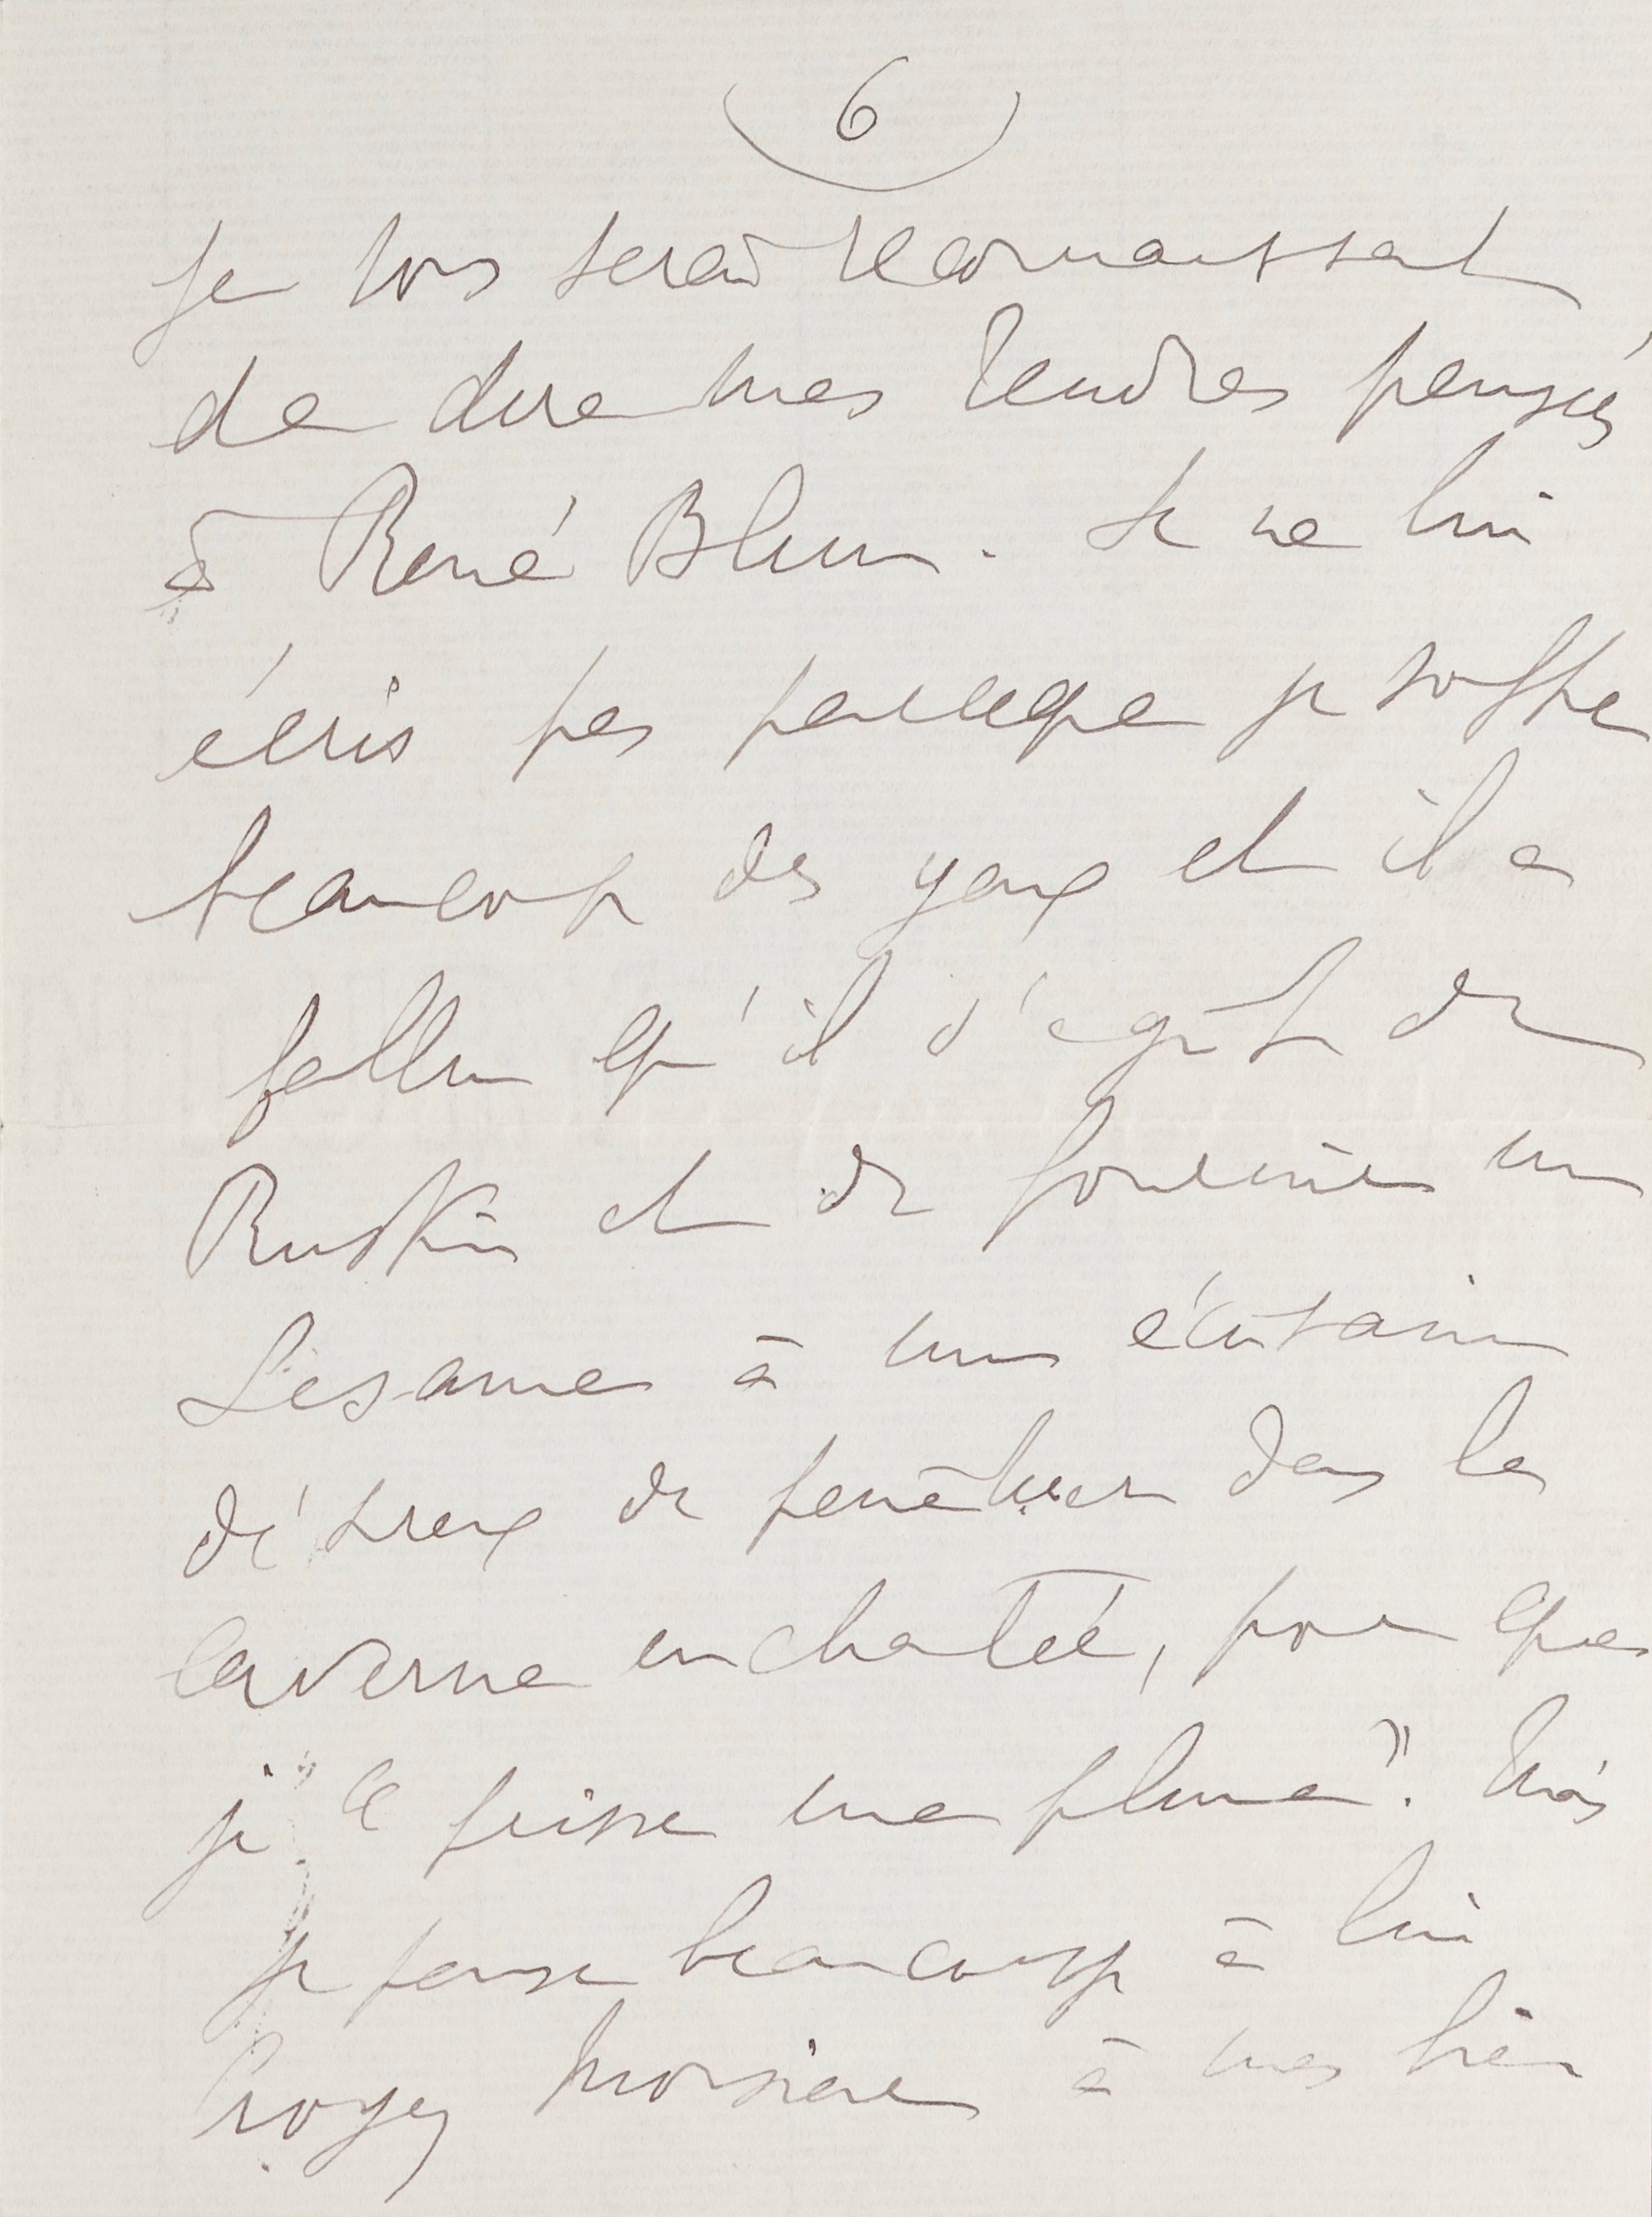 6
Je vous serais reconnaissant
de dire mes tendres pensées
à René Blum. Je ne lui
écris pas parceque je souffre
beaucoup des yeux et il a
fallu qu'il s'agît de
Ruskin et de fournir un
Sesame à un écrivain
désireux de pénétrer dans la
caverne enchantée, pour que
je "prisse une plume". Mais
je pense beaucoup à lui
Croyez Monsieur à mes bien